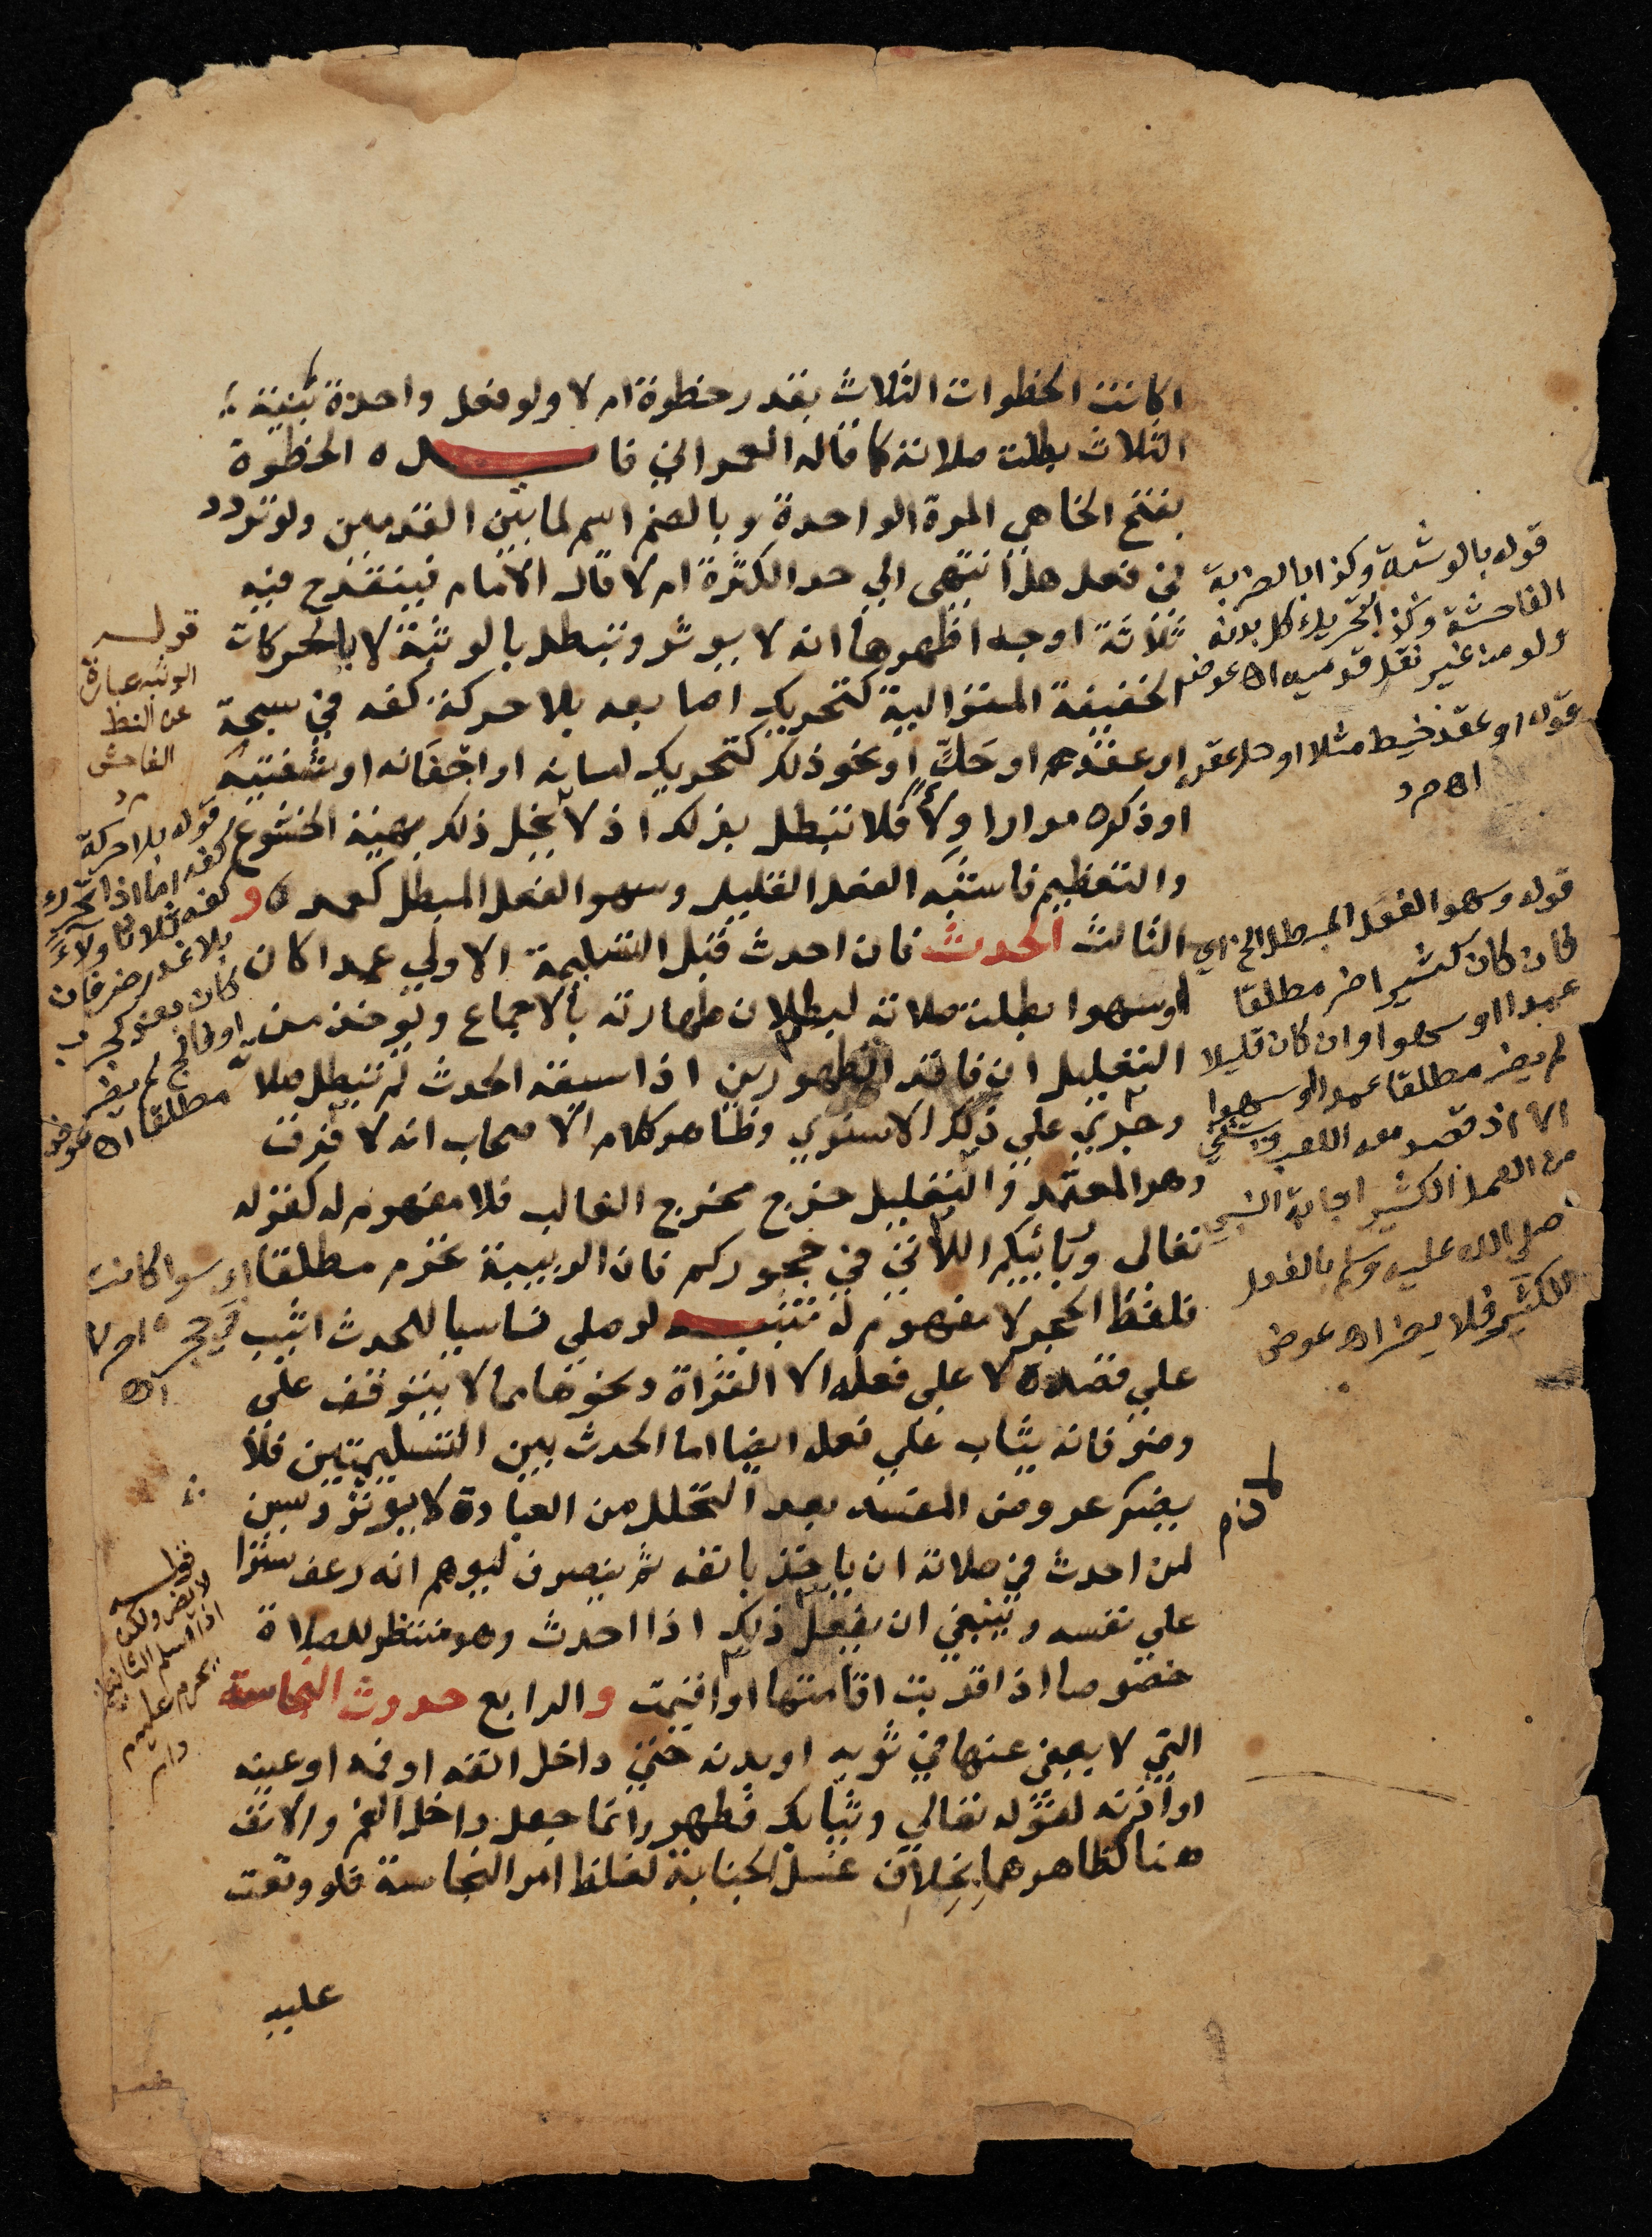 اكانت الخطوات الثلاث بقدر خطوة ام لا ولو فعل واحدة بنية
الثلاث بطلت صلاته كما قاله العمراني فايـــده الخطوة
بفتح الخا هي المرة الواحدة وبالضم اسم لما بين القدمين ولو تردد
في فعل هل انتهى الي حد الكثرة ام لا قال الامام فينقدح فيه
ثلاثة اوجه اظهرها انه لا يوثر وتبطل بالوثبة لا بالحركات
الخفيفة المتوالية كتحريك اصابعه بلا حركة كفه في سبحة
او عقده او حَكٍّ او نحو ذلك كتحريك لسانه او اجفانه او شفتيه
او ذكره مرارا ولاً فلا تبطل بذلك اذ لا يخل ذلك بهيئة الخشوع
والتعظيم فاشبه الفعل القليل وسهو الفعل المبطل كعمده و
الثالث الحدث فان احدث قبل التسليمة الاولي عمدا كان
او سهوا بطلت صلاته لبطلان طهارته بالاجماع ويوخذ من
التعليل ان فاقد الطهورين اذا سبقه الحدث لم تبطل صلاته
وجري علي ذلك الاسنوي وظاهر كلام الاصحاب انه لا فرق
وهو المعتمد والتعليل خرج مخرج الغالب فلا مفهوم له كقوله
تعالى وربائبكم اللاتي في حجوركم فان الربيبة تحرم مطلقا
فلفظ الحجر لا مفهوم له تنبيـــه لو صلي ناسيا للحدث اثيب
علي قصده لا علي فعله الا القراة ونحوها مما لا يتوقف علي
وضو فانه يثاب علي فعله ايضا اما الحدث بين التسليمتين فلا
يضر عروض المفسد بعد التحلل من العبادة لا يوثر ويسن
لمن احدث في صلاته ان ياخذ بانفه ثم ينصرف ليوهم انه رعف سترا
علي نفسه وينبغي ان يفعل ذلك اذا احدث وهو منتظر للصلاة
خصوصا اذا قربت اقامتها او اقيمت والرابع حدوث النجاسة
التي لا يعفي عنها في ثوبه او بدنه حتي داخل انفه او فمه او عينه
او اذنه لقوله تعالي وثيابك فطهر وانما جعل داخل الفم والانف
هنا كظاهرهما بِخِلاف غسل الجنابة لغلظ امر النجاسة فلو وقعت
عليه
قوله بالوثبة وكذا بالضربة
الفاحشة وكذا تحريك كل بدنه
ولو من غير نقل قدميه اه عوض
قوله او عقد خيط مثلا او حل عقد
اه م د
قوله وسهو الفعل المبطل الخ اي
فان كان كثيرا ضر مطلقا
عمدا او سهوا وان كان قليلا
لم يضر مطلقا عمدا او سهوا
الا اذ قصد معه اللعب ويستثني
من العمل الكثير اجابة النبي
صلي الله عليه وسلم بالفعل
الكثير فلا يضر اه عوض
قوله
الوثبه عبارة
عن النط
الفاحش
م د
قوله بلا حركة
كفه اما اذا تحرك
كفه ثلاثا ولاءً
بلا عذر ضر فان
كان بعذر كجرب
او فالج لم يضر
مطلقا اه عوض
اي سوا كانت
في حجره ام لا
اه
قوله
لا يضر ولكن
اذا سلم الثانية
يحرم عليه